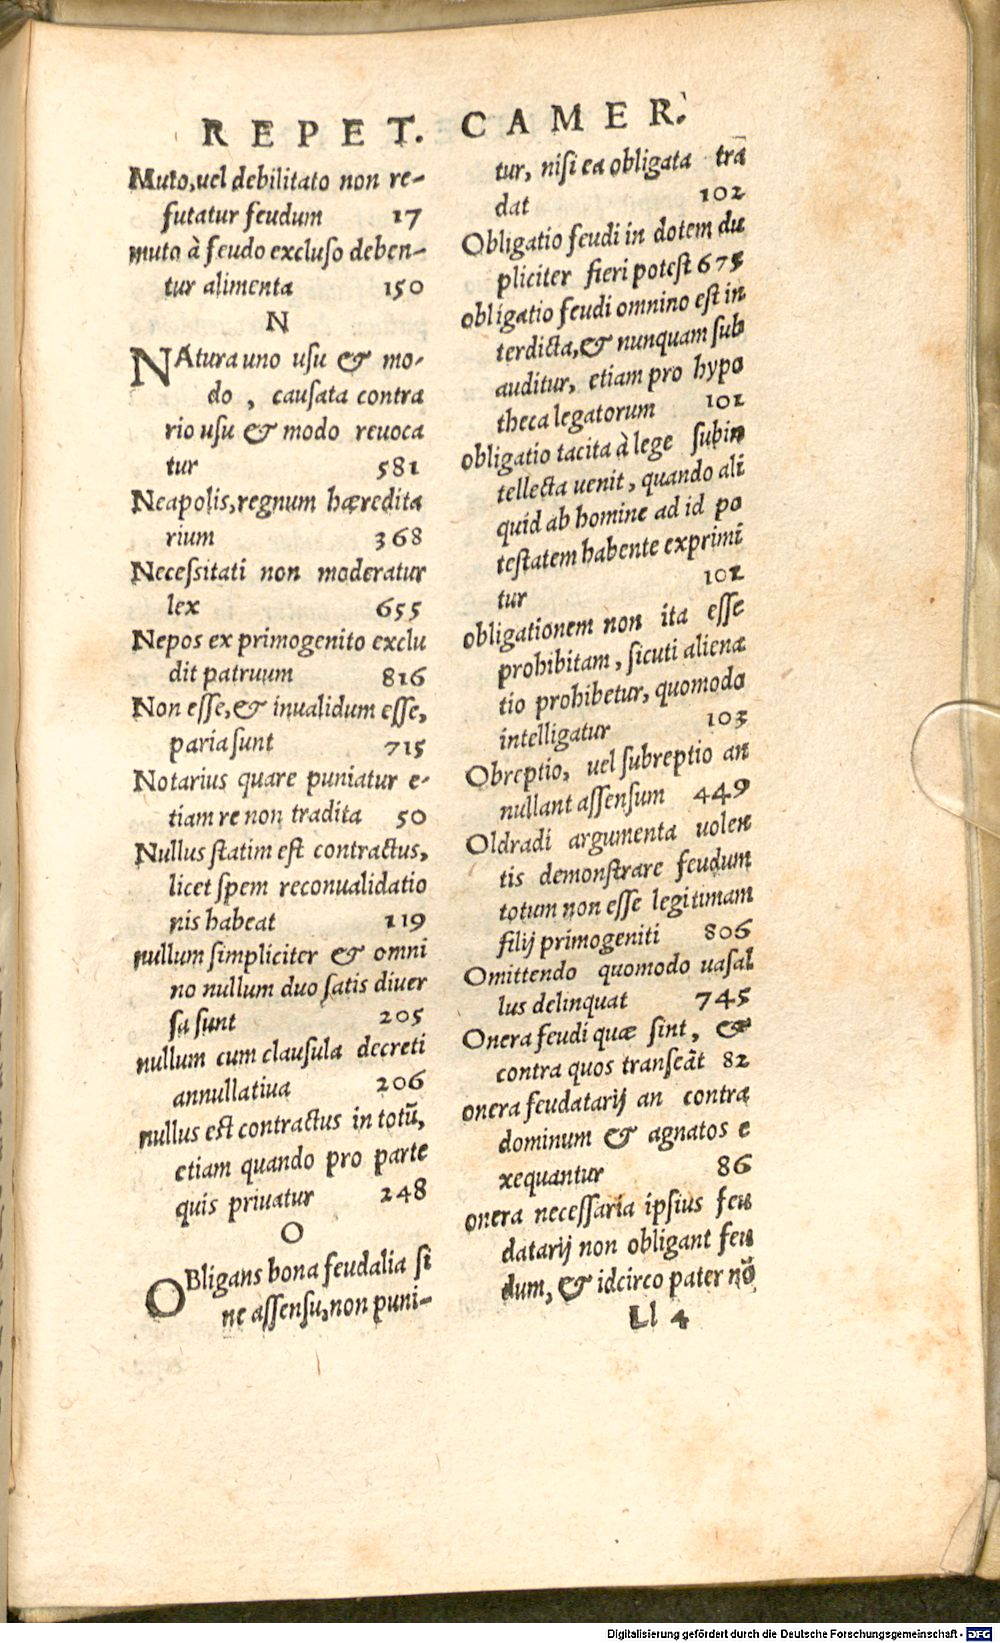 REPET. CAMER.
Muto, uel debilitato non re-
futatur feudum 17
muto à feudo excluso deben-
tur alimenta 150
N
NAtura uno usu & mo-
do, causata contra
rio usu & modo reuoca
tur 581
Neapolis, regnum hæredita
rium 368
Necessitati non moderatur
lex 655
Nepos ex primogenito exclu
dit patruum 816
Non esse, & inualidum esse,
paria sunt 715
Notarius quare puniatur e-
tiam re non tradita 50
Nullus statim est contractus,
licet spem reconualidatio
nis habeat 119
nullum simpliciter & omni
no nullum duo satis diuer
sa sunt 205
nullum cum clausula decreti
annullatiua 206
nullus est contractus in totū,
etiam quando pro parte
quis priuatur 248
O
OBligans bona feudalia si
ne assensu, non puni-
tur, nisi ea obligata tra
dat 102
Obligatio feudi in dotem du
pliciter fieri potest 675
obligatio feudi omnino est in
terdicta, & nunquam sub
auditur, etiam pro hypo
theca legatorum 101
obligatio tacita à lege subin
tellecta uenit, quando ali
quid ab homine ad id po
testatem habente exprimi
tur 101
obligationem non ita esse
prohibitam, sicuti aliena
tio prohibetur, quomodo
intelligatur 103
Obreptio, uel subreptio an
nullant assensum 449
Oldradi argumenta uolen
tis demonstrare feudum
totum non esse legitimam
filij primogeniti 806
Omittendo quomodo uasal
lus delinquat 745
Onera feudi quæ sint, &
contra quos transeāt 82
onera feudatarij an contra
dominum & agnatos e
xequantur 86
onera necessaria ipsius feu
datarij non obligant feu
dum, & idcirco pater nō
Ll 4
Digitalisierung gefördert durch die Deutsche Forschungsgemeinschaft - DFG